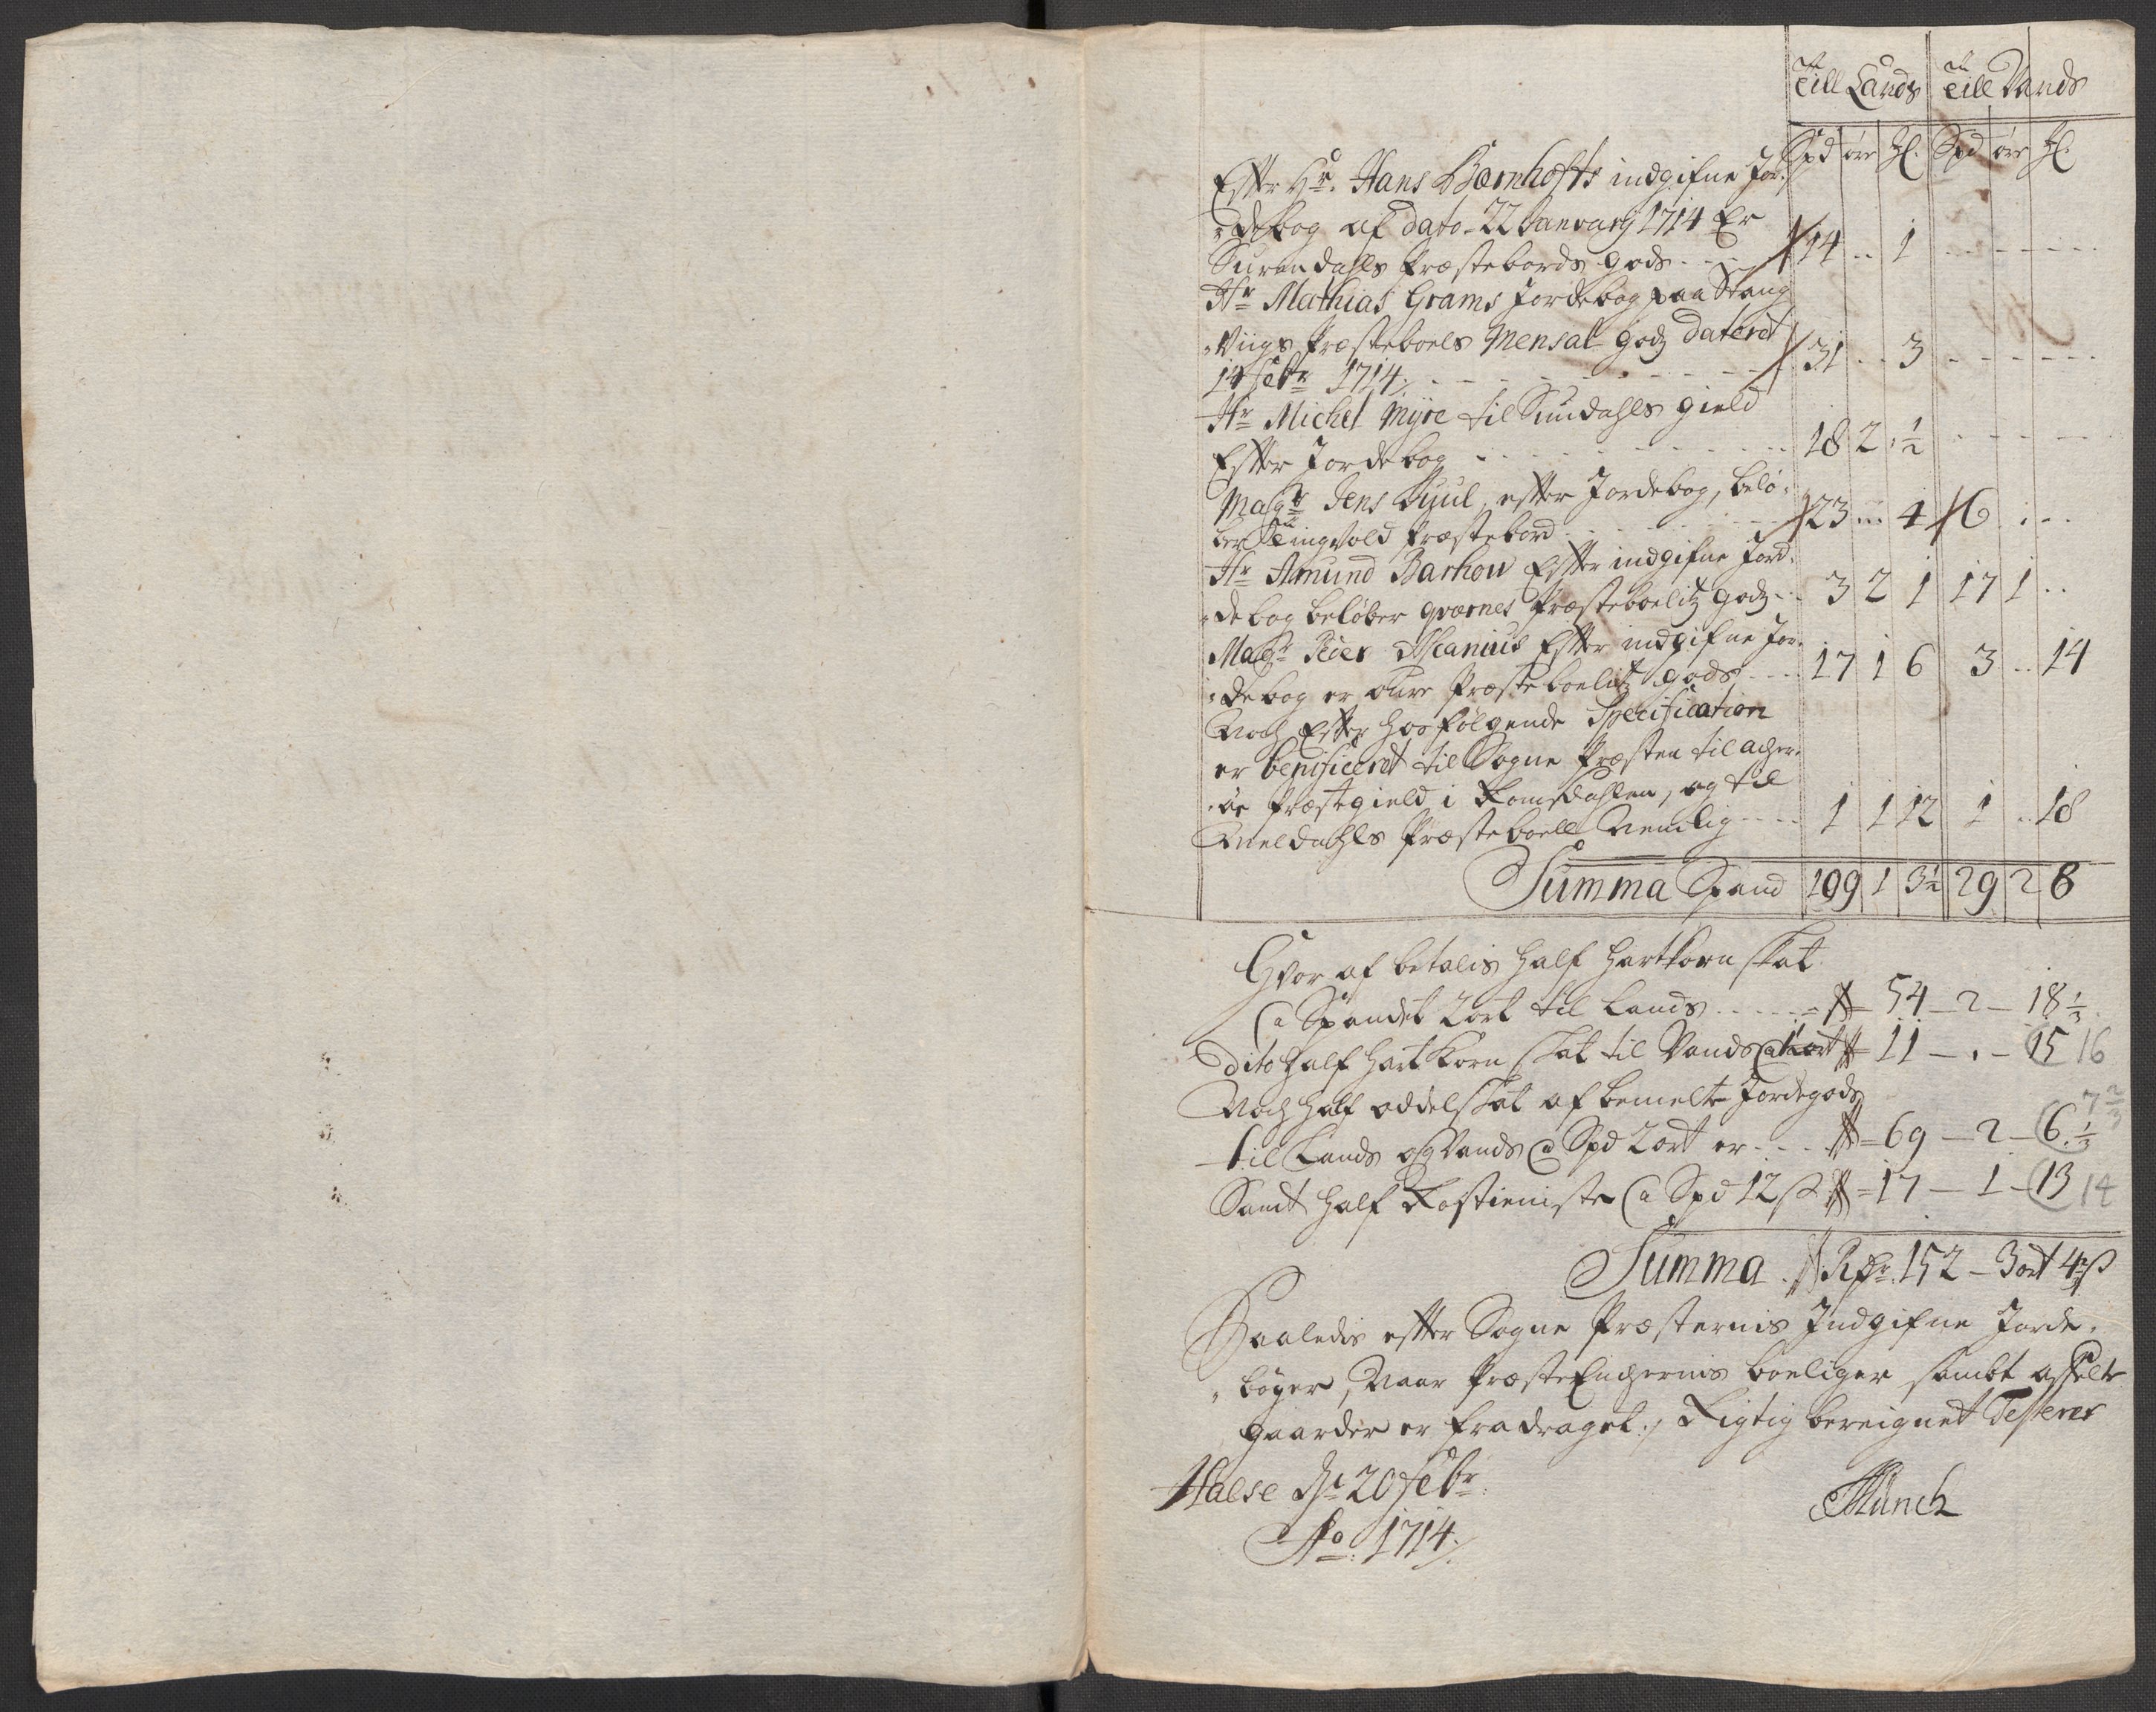 Till Lands Till Vands
Spd øre Ml. Spd øre Ml.
Effter Hr. Hans Bernhofts indgifne Jor-
debog af dato 22 Januarij 1714 Er
Surendahls Præstebords gods - - - 14 .. 1 - - - - -
Hr Mathias Grams Jordebog paa Stang-
Viigs Præsteboels Mensal Godz dateret
14 Febr 1714 /. - - - - - - 31 .. 3 - - - - -
Hr Michel Myre til Sundahls gield
Effter Jordebog - - - - - - 18 2 1/2 - - - - -
Magr Jens Juul, effter Jordebog, belø-
ber Tingvold Præstebord - - - - 23 ... 4 6 . - -
Hr Amund Barhow Effter indgifne Jord-
debog beløber qvernes Præsteboelitz Godz - - 3 2 1 17 1 ..
Magr Peder Ascanius Effter indgifne Jor-
debog er Aure Præsteboelitz gods - - - 17 1 6 3 .. 14
Noch Effter hosfølgende Specification
er benificeret til Sogne Præsten til Acher-
øe Præstegield i Romsdahlen, og til
Meldahls Præsteboell Nemlig - - - 1 1 12 1 .. 18
Summa Spand 109 1 3 1/2 29 2 8
Hvor af betalis half hartkorn skat
a Spandet 2 ort til Lands - - - - 54 - 2 - 18 1/3
Dito half hartkorn skat til Vands a 1 ort 11 - . - 15 16
Noch half oddelskat af bemelte Jordegods 7 2/3
til Lands og Vands a Spd 2 ort er - - - 69 - 2 - 6 1/3
Samt half Rostieniste a Spd 12 s 17 - 1 - 13 14
Summa Rdr. 152 - 3 ort 4 s
Saaledis effter Sogne Præsternis Indgifne Jorde-
bøger, Naar PræsteEnchernis boeliger sambt
gaarder er fradraget, Rigtig bereignet Testerer
Halse d 20 Febr:
Ao 1714 /.
Münch